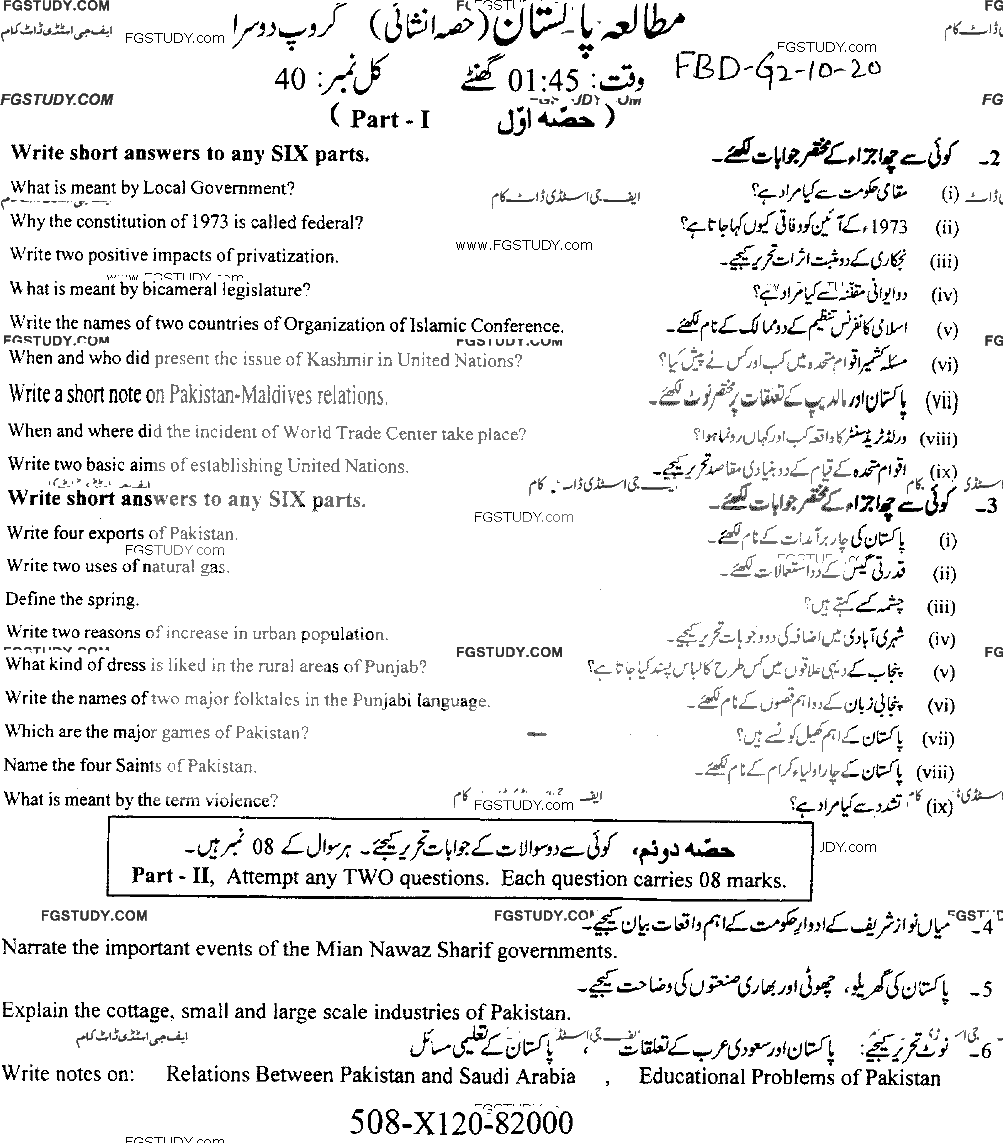 FGSTUDY.COM FG
ایف جی اسٹڈی ڈاٹ کام FGSTUDY.com مطالعہ پاکستان (حصہ انشائی) گروپ دوسرا
FGSTUDY.com
وقت: 01:45 گھنٹے کل نمبر: 40 FBD-G2-10-20
FGSTUDY.COM FG
( Part - I حصّہ اوّل )
Write short answers to any SIX parts. 2۔ کوئی سے چھ اجزاء کے مختصر جوابات لکھئے۔
What is meant by Local Government? (i) مقامی حکومت سے کیا مراد ہے؟
ایف جی اسٹڈی ڈاٹ کام
Why the constitution of 1973 is called federal? (ii) 1973ء کے آئین کو وفاقی کیوں کہا جاتا ہے؟
www.FGSTUDY.com
Write two positive impacts of privatization. (iii) نجکاری کے دو مثبت اثرات تحریر کیجیے۔
www.FGSTUDY.com
What is meant by bicameral legislature? (iv) دو ایوانی مقننہ سے کیا مراد ہے؟
Write the names of two countries of Organization of Islamic Conference. (v) اسلامی کانفرنس تنظیم کے دو ممالک کے نام لکھئے۔
FGSTUDY.COM FGSTUDY.COM FG
When and who did present the issue of Kashmir in United Nations? (vi) مسئلہ کشمیر اقوام متحدہ میں کب اور کس نے پیش کیا؟
Write a short note on Pakistan-Maldives relations. (vii) پاکستان اور مالدیپ کے تعلقات پر مختصر نوٹ لکھئے۔
When and where did the incident of World Trade Center take place? (viii) ورلڈ ٹریڈ سنٹر کا واقعہ کب اور کہاں رونما ہوا؟
Write two basic aims of establishing United Nations. (ix) اقوام متحدہ کے قیام کے دو بنیادی مقاصد تحریر کیجیے۔
ایف جی اسٹڈی ڈاٹ کام
Write short answers to any SIX parts. 3۔ کوئی سے چھ اجزاء کے مختصر جوابات لکھئے۔
FGSTUDY.com
Write four exports of Pakistan. (i) پاکستان کی چار برآمدات کے نام لکھئے۔
FGSTUDY.com
Write two uses of natural gas. (ii) قدرتی گیس کے دو استعمالات لکھئے۔
Define the spring. (iii) چشمہ کسے کہتے ہیں؟
Write two reasons of increase in urban population. (iv) شہری آبادی میں اضافہ کی دو وجوہات تحریر کیجیے۔
FGSTUDY.COM FGSTUDY.COM FG
What kind of dress is liked in the rural areas of Punjab? (v) پنجاب کے دیہی علاقوں میں کس طرح کا لباس پسند کیا جاتا ہے؟
Write the names of two major folktales in the Punjabi language. (vi) پنجابی زبان کے دو اہم قصوں کے نام لکھئے۔
Which are the major games of Pakistan? (vii) پاکستان کے اہم کھیل کونسے ہیں؟
Name the four Saints of Pakistan. (viii) پاکستان کے چار اولیاء کرام کے نام لکھئے۔
What is meant by the term violence? (ix) تشدد سے کیا مراد ہے؟
FGSTUDY.com
حصّہ دوئم، کوئی سے دو سوالات کے جوابات تحریر کیجیے۔ ہر سوال کے 08 نمبر ہیں۔
Part - II, Attempt any TWO questions. Each question carries 08 marks.
FGSTUDY.COM FGSTUDY.COM
4۔ میاں نواز شریف کے ادوار حکومت کے اہم واقعات بیان کیجیے۔
Narrate the important events of the Mian Nawaz Sharif governments.
5۔ پاکستان کی گھریلو، چھوٹی اور بھاری صنعتوں کی وضاحت کیجیے۔
Explain the cottage, small and large scale industries of Pakistan.
ایف جی اسٹڈی ڈاٹ کام
6۔ نوٹ تحریر کیجیے: پاکستان اور سعودی عرب کے تعلقات ، پاکستان کے تعلیمی مسائل
Write notes on: Relations Between Pakistan and Saudi Arabia , Educational Problems of Pakistan
508-X120-82000
FGSTUDY.COM FGSTUDY.com